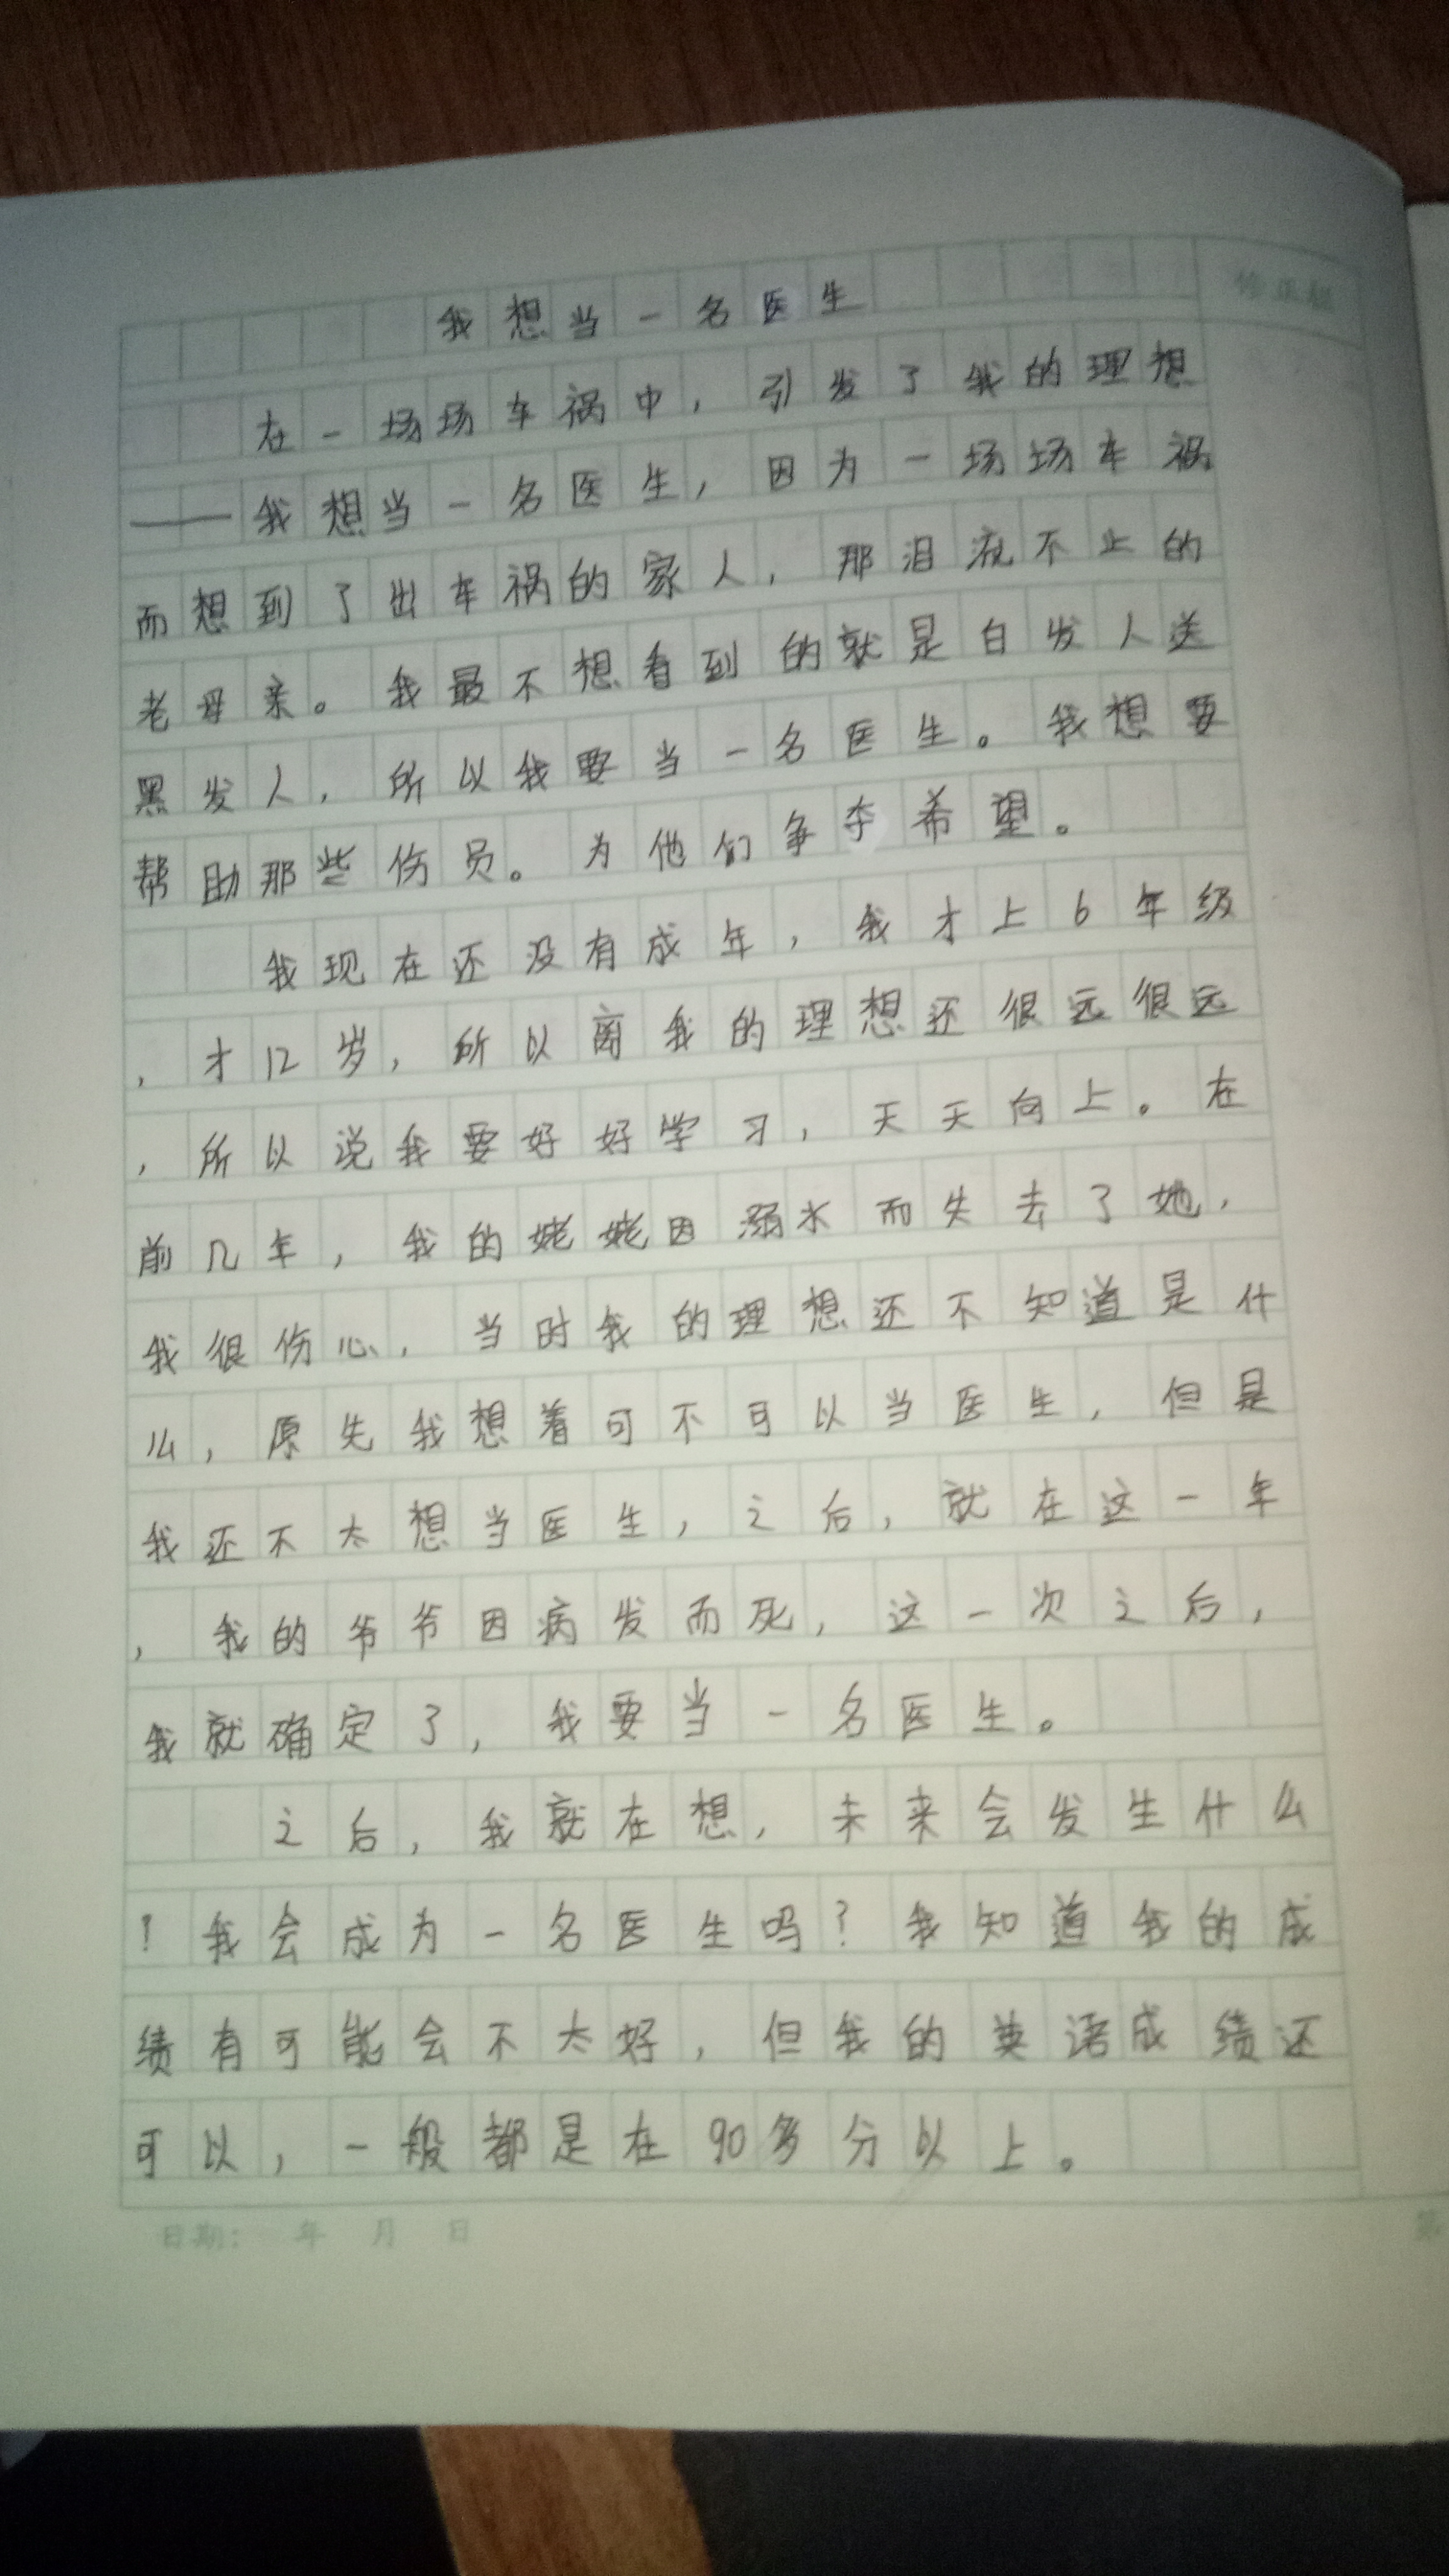 我想当一名医生
在一场场车祸中，引发了我的理想
——我想当一名医生，因为一场场车祸
而想到了出车祸的家人，那泪流不止的
老母亲。我最不想看到的就是白发人送
黑发人，所以我要当一名医生。我想要
帮助那些伤员。为他们争夺希望。
我现在还没有成年，我才上6年级
，才12岁，所以离我的理想还很远很远
，所以说我要好好学习，天天向上。在
前几年，我的姥姥因溺水而失去了她，
我很伤心，当时我的理想还不知道是什
么，原先我想着可不可以当医生，但是
我还不太想当医生，之后，就在这一年
，我的爷爷因病发而死，这一次之后，
我就确定了，我要当一名医生。
之后，我就在想，未来会发生什么
！我会成为一名医生吗？我知道我的成
绩有可能会不太好，但我的英语成绩还
可以，一般都是在90多分以上。
日期： 年 月 日
第